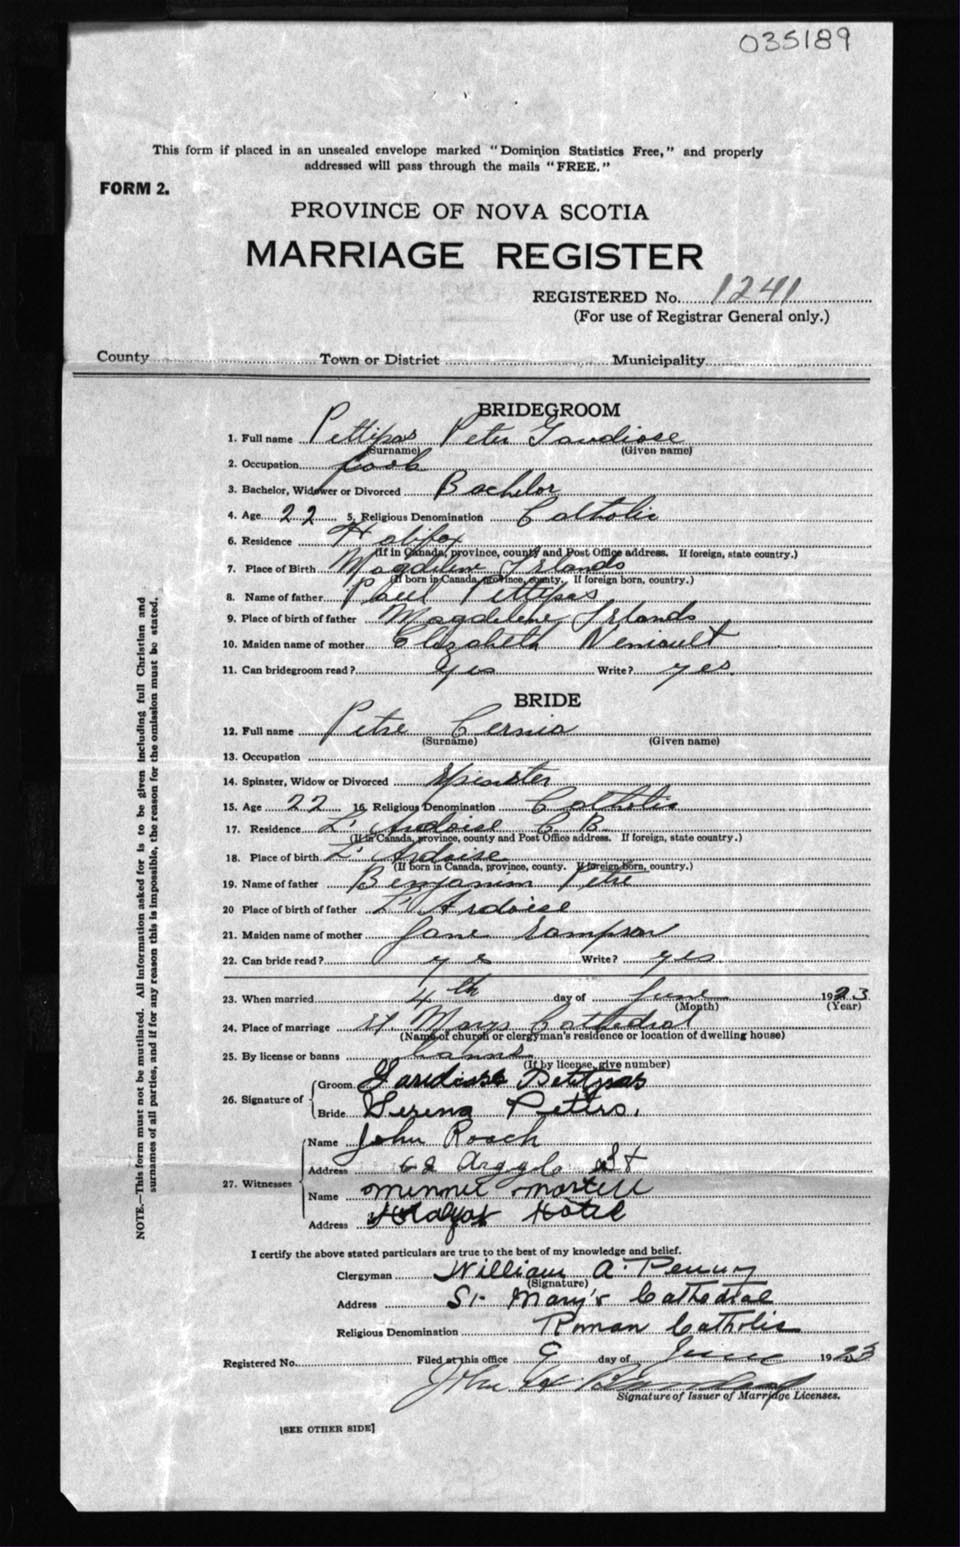 035189
This form if placed in an unsealed envelope marked "Dominion Statistics Free," and properly
addressed will pass through the mails "FREE."
FORM 2.
PROVINCE OF NOVA SCOTIA
MARRIAGE REGISTER
REGISTERED No. 1241
(For use of Registrar General only.)
County Town or District Municipality
BRIDEGROOM
1. Full name Pettipas Peter Gaudiose
(Surname) (Given name)
2. Occupation Cook
3. Bachelor, Widower or Divorced Bachelor
4. Age 22 5. Religious Denomination Catholic
6. Residence Halifax
(If in Canada, province, county and Post Office address. If foreign, state country.)
7. Place of Birth Magdelene Islands
(If born in Canada, province, county. If foreign born, country.)
8. Name of father Paul Pettipas
9. Place of birth of father Magdelene Islands
10. Maiden name of mother Elizabeth
11. Can bridegroom read? Yes Write? yes
BRIDE
12. Full name Petre
(Surname) (Given name)
13. Occupation
14. Spinster, Widow or Divorced Spinster
15. Age 22 16. Religious Denomination Catholic
17. Residence L'Ardoise C. B.
(If in Canada, province, county and Post Office address. If foreign, state country.)
18. Place of birth L'Ardoise
(If born in Canada, province, county. If foreign born, country.)
19. Name of father Benjamin Petre
20 Place of birth of father L'Ardoise
21. Maiden name of mother Jane Sampson
22. Can bride read? yes Write? yes
23. When married 4th day of June 1923
(Month) (Year)
24. Place of marriage St Marys Cathedral
(Name of church or clergyman's residence or location of dwelling house)
25. By license or banns banns
(If by license, give number)
26. Signature of Groom Gaudiose Petitpas
Bride Serena Petters.
27. Witnesses Name John Roach
Address 62 Argyle St
Name Minnie Martell
Address Halifax Hotel
I certify the above stated particulars are true to the best of my knowledge and belief.
Clergyman William A. Penny
(Signature)
Address St. Mary's Cathedral
Religious Denomination Roman Catholic
Registered No. Filed at this office 9 day of June 1923
John
Signature of Issuer of Marriage Licenses.
[SEE OTHER SIDE]
NOTE.—This form must not be mutilated. All information asked for is to be given including full Christian and
surnames of all parties, and if for any reason this is impossible, the reason for the omission must be stated.